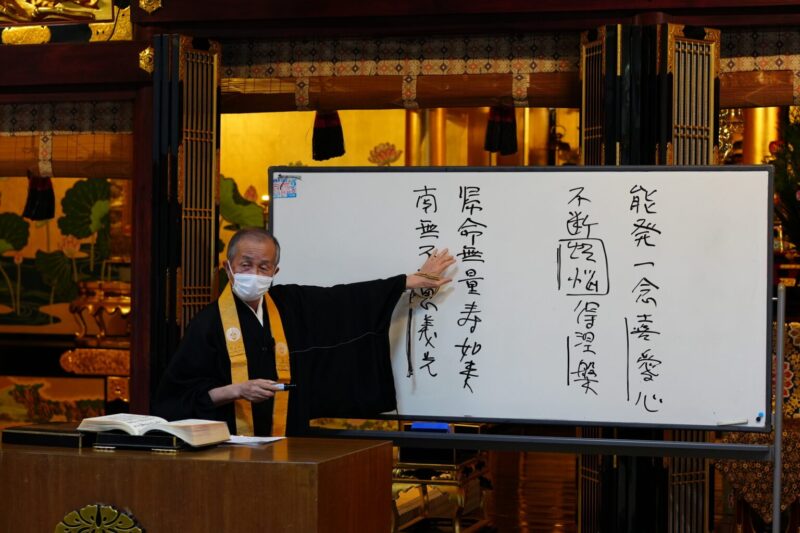 能発一念喜愛心
不断煩悩得涅槃
帰命無量寿如来
南無不思議光